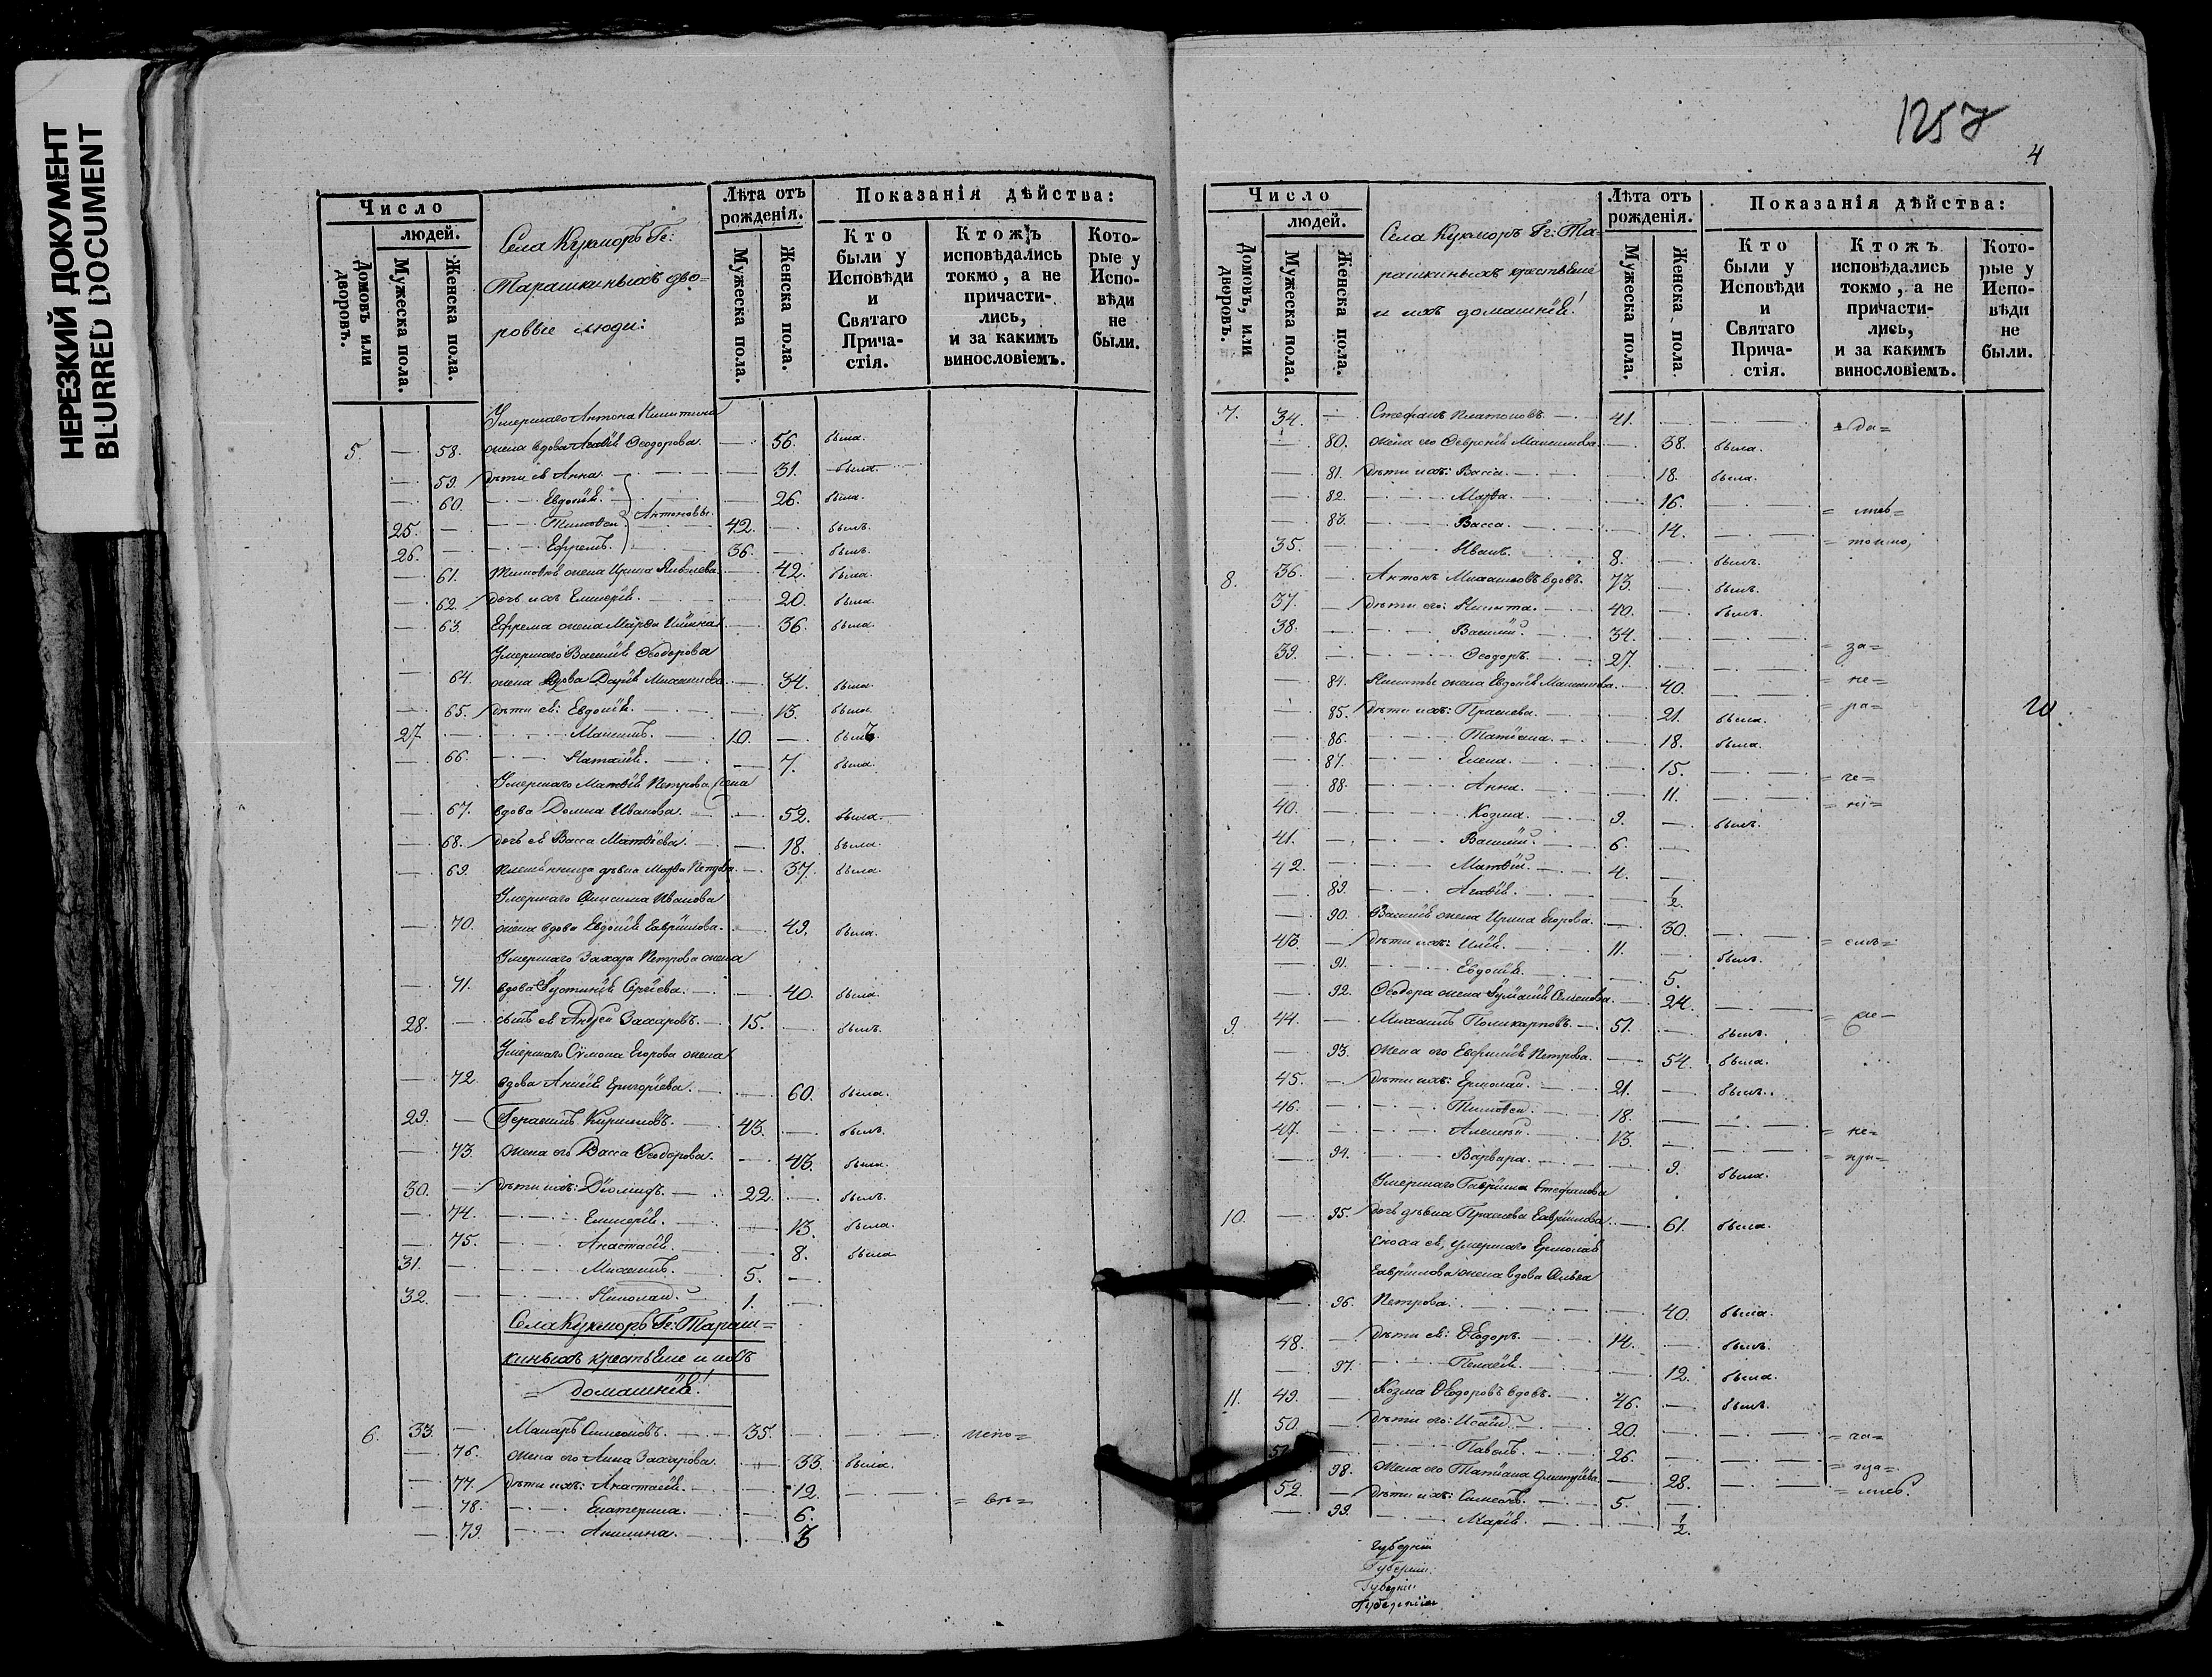 НЕРЕЗКИЙ ДОКУМЕНТ
BLURRED DOCUMENT
Число
людей.
Домовъ или дворовъ.
Мужеска пола.
Женска пола.
Села Кукморъ Гг:
Тарашкиныхъ дво=
ровые люди:
Лѣта отъ рожденія.
Мужеска пола.
Женска пола.
Показанія дѣйства:
Кто были у Исповѣди и Святаго Прича-стія.
Ктожъ исповѣдались токмо, а не причасти-лись, и за какимъ винословіемъ.
Кото-рые у Испо-вѣди не были.
Умершаго Антона Никитина
5. — 58. жена вдова Агаѳія Ѳеодорова. — 56. была.
— 59. дѣти ея Анна. — 31. была.
— 60. Евдокія. Антоновы. — 26. была.
25. — Тимоѳей 42. — былъ.
26. — Ефремъ. 36. — былъ.
— 61. Тимоѳея жена Ирина Яковлева — 42. была.
— 62. дочь ихъ Гликерія. — 20. была.
— 63. Ефрема жена Марѳа — 36. была.
Умершаго Василія Ѳеодорова
— 64. жена вдова Дарія Михаилова — 34. была.
— 65. дѣти ея: Евдокія. — 13. была.
27 — 10. — былъ.
— 66. Наталія. — 7. была.
Умершаго Матѳія Петрова жена
— 67. вдова Домна Иванова. — 52. была.
— 68. дочь ея Васса Матѳіева. — 18. была.
— 69. племянница дѣвка Марѳа — 37. была.
Умершаго Анисима Иванова
— 70. жена вдова Евдокія Гавріилова. — 49. была.
Умершаго Захара Петрова жена
— 71. вдова Іустинія Сергіева. — 40. была.
28. — сынъ ея Андрей Захаровъ. 15. — былъ.
Умершаго Сѵмона Егорова жена
— 72. вдова Григоріева. — 60. была.
29. — Герасимъ Кирилловъ. 43. — былъ.
— 73. жена его Васса Ѳеодорова. — 43. была.
30. — дѣти ихъ: Діомидъ. 22. — былъ.
— 74. Гликерія. — 13. была.
— 75. Анастасія. — 8. была
31. — Михаилъ. 5. —
32. — Николай. 1. —
Села Кукморъ Гг: Тараш=
киныхъ крестьяне и ихъ
= домашніе!
6. 33. — Макаръ Симеоновъ. 35. — испо=
— 76. жена его Анна Захарова. — 33. была.
— 77. дѣти ихъ: Анастасія. — 12. — = вѣ =
— 78. Екатерина. — 6.
— 79. Акилина. — 3
1257
4
Число
людей.
Домовъ, или дворовъ.
Мужеска пола.
Женска пола.
Села Кукморъ Гг: Та=
рашкиныхъ крестьяне
и ихъ домашніе!
Лѣта отъ рожденія.
Мужеска пола.
Женска пола.
Показанія дѣйства:
Кто были у Исповѣди и Святаго Прича-стія.
Ктожъ исповѣдались токмо, а не причасти-лись, и за какимъ винословіемъ.
Кото-рые у Испо-вѣди не были.
7. 34. — Стефанъ Платоновъ. 41. — = да=
— 80. жена его Ѳевронія — 38. была.
— 81. дѣти ихъ: Васса. — 18. была.
— 82. Марѳа. — 16. —
— 83. Васса. — 14. — = токмо,
35. — Иванъ. 8. — былъ.
8. 36. — Антонъ Михаиловъ вдовъ. 73. — былъ.
37. — дѣти его: Никита. 40. — былъ.
38. — Василій. 34. — = за=
39. — Ѳеодоръ. 27. — = не=
— 84. Никиты жена Евдокія — 40. — = ра=
20.
— 85. дѣти ихъ: Прасковья. — 21. была.
— 86. Татіана. — 18. была.
— 87. Елена. — 15. — = че=
— 88. Анна. — 11. — = ні=
40. — Козма. 9. — былъ.
41. — Василій. 6. —
42. — Матѳій. 4. —
— 89. Агаѳія. — 1/2.
— 90. Василія жена Ирина Егорова. — 30. — = емъ=
43. — дѣти ихъ: Илія. 11. — былъ.
— 91. Евдокія. — 5.
— 92. Ѳеодора жена Іуліанія Семенова. — 24. —
9. 44. — Михаилъ Поликарповъ. 51. — былъ.
— 93. жена его Евфимія Петрова. — 54. была.
45. — дѣти ихъ: Ермолай. 21. — былъ.
46. — Тимоѳей. 18. — = не=
47. — Алексѣй. 13. — = при=
— 94. Варвара. — 9. была.
Умершаго Гавріила Стефанова
10. — 95. дочь дѣвка Гавріилова. — 61. была.
Сноха ея, умершаго Ермолая
Гавріилова жена вдова
— 96. Петрова. — 40. была.
48. — дѣти ея: Ѳеодоръ. 14. — былъ.
— 97. Пелагія. — 12. была.
11. 49. — Козма Ѳеодоровъ вдовъ. 46. — былъ.
50. — дѣти его: Исаія. 20. —
51. — Павелъ. 26. —
— 98. жена его Татіана Димитріева. — 28. —
52. — дѣти ихъ: Симеонъ. 5. —
— 99. Марія. — 1/2.
Губерніи
Губерніи
Губерніи
Губерніи